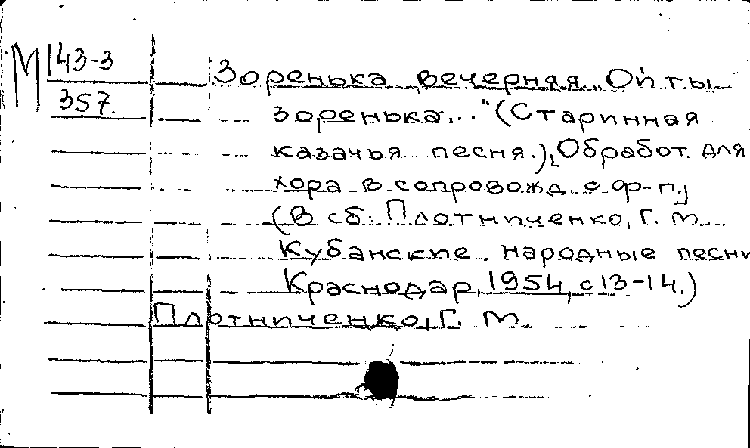 М 43-3
357
Зоренька вечерняя „Ой ты
зоренька..." (Старинная
казачья песня.), Обработ. для
хора в сопровожд. с ф-п.,
(В сб: Плотниченко, Г. М.
Кубанские народные песни
Краснодар, 1954, с 13-14.)
Плотниченко, Г. М.